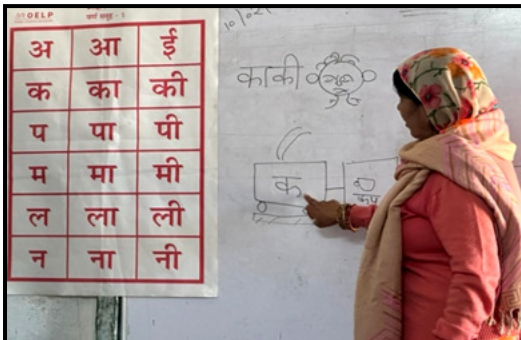 OELP
वर्ण समूह - 1
अ आ ई
क का की
प पा पी
म मा मी
ल ला ली
न ना नी
काकी
क
कप